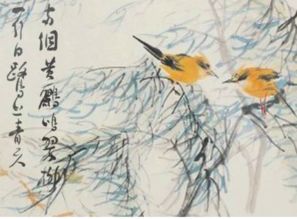 両個黄鸝鳴翠柳
一行白鷺上青天